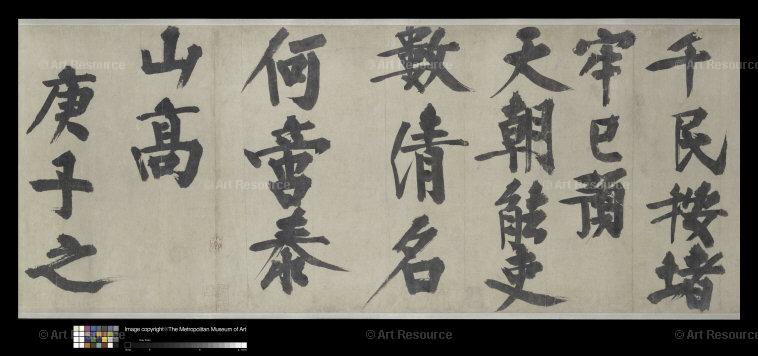 千民按堵
牢已預
天朝能吏
數清名
何啻泰
山高
庚子之
© Art Resource
© Art Resource
© Art Resource
© Art Resource
© Art Resource
© Art Resource
© Art Resource
© Art Resource
Image copyright©The Metropolitan Museum of Art